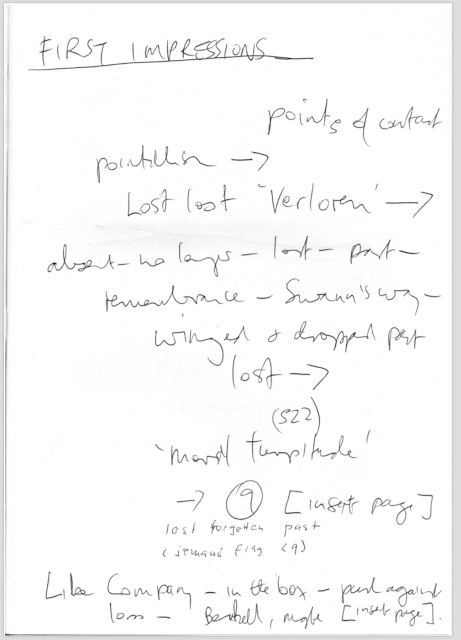 FIRST IMPRESSIONS
points of contact
pointillism →
Lost lost 'Verloren' →
absent – no longer – lost – past –
remembrance – Swann's way –
winged & dropped past
lost →
(522)
'moral turpitude'
→ 9 [insert page]
lost forgotten past
flag (9)
Like Company – in the box – against
loss – [insert page].